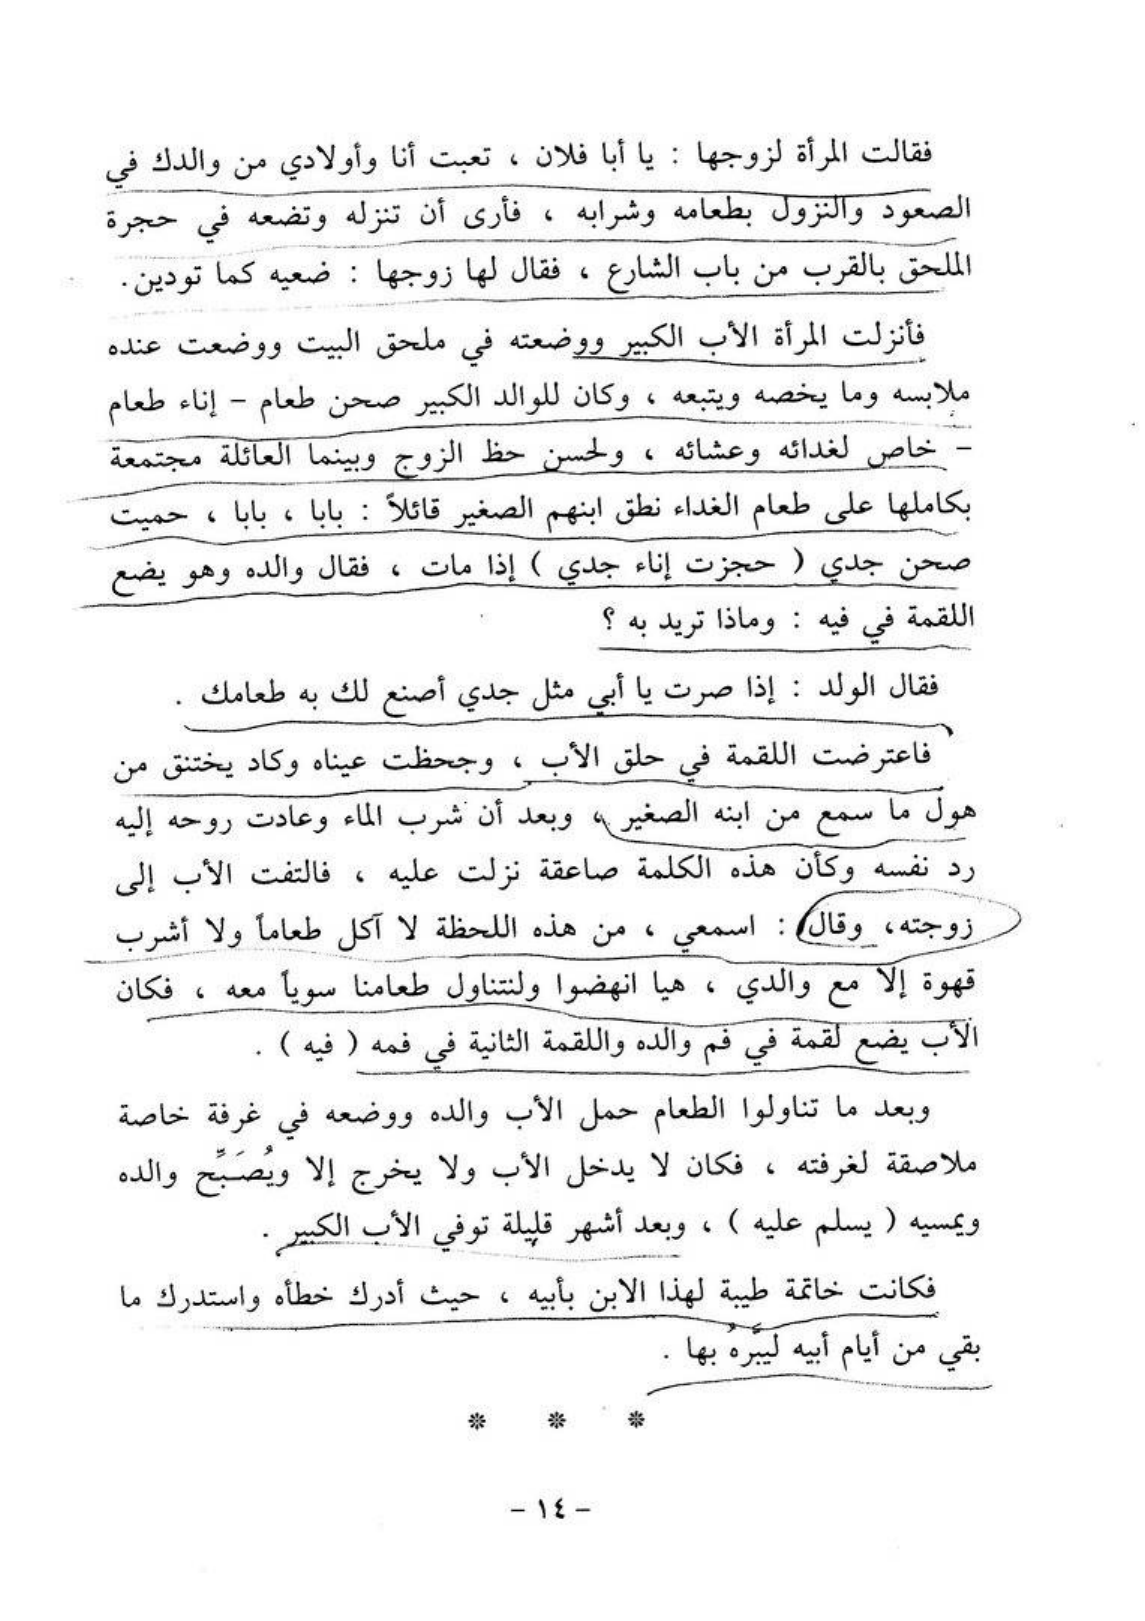 فقالت المرأة لزوجها : يا أبا فلان ، تعبت أنا وأولادي من والدك في
الصعود والنزول بطعامه وشرابه ، فأرى أن تنزله وتضعه في حجرة
الملحق بالقرب من باب الشارع ، فقال لها زوجها : ضعيه كما تودين.
فأنزلت المرأة الأب الكبير ووضعته في ملحق البيت ووضعت عنده
ملابسه وما يخصه ويتبعه ، وكان للوالد الكبير صحن طعام – إناء طعام
– خاص لغدائه وعشائه ، ولحسن حظ الزوج وبينما العائلة مجتمعة
بكاملها على طعام الغداء نطق ابنهم الصغير قائلاً : بابا ، بابا ، حميت
صحن جدي ( حجزت إناء جدي ) إذا مات ، فقال والده وهو يضع
اللقمة في فيه : وماذا تريد به ؟
فقال الولد : إذا صرت يا أبي مثل جدي أصنع لك به طعامك .
فاعترضت اللقمة في حلق الأب ، وجحظت عيناه وكاد يختنق من
هول ما سمع من ابنه الصغير ، وبعد أن شرب الماء وعادت روحه إليه
رد نفسه وكأن هذه الكلمة صاعقة نزلت عليه ، فالتفت الأب إلى
زوجته، وقال : اسمعي ، من هذه اللحظة لا آكل طعاماً ولا أشرب
قهوة إلا مع والدي ، هيا انهضوا ولنتناول طعامنا سوياً معه ، فكان
الأب يضع لقمة في فم والده واللقمة الثانية في فمه ( فيه ) .
وبعد ما تناولوا الطعام حمل الأب والده ووضعه في غرفة خاصة
ملاصقة لغرفته ، فكان لا يدخل الأب ولا يخرج إلا ويُصَبِّح والده
ويمسيه ( يسلم عليه ) ، وبعد أشهر قليلة توفي الأب الكبير .
فكانت خاتمة طيبة لهذا الابن بأبيه ، حيث أدرك خطأه واستدرك ما
بقي من أيام أبيه ليَبَّرهُ بها .
* * *
– ١٤ –